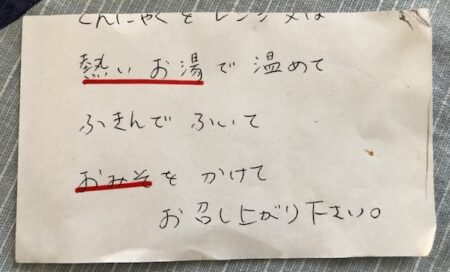 こんにゃくを レンジ又は
熱い お湯で 温めて
ふきんで ふいて
おみそを かけて
お召し上がり下さい。